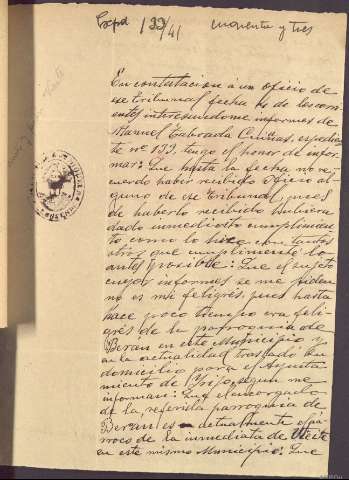 Expd 133/41 cincuenta y tres
En contestacion á un oficio de
ese Tribunal fecha 10 de los corri-
entes interesandome informes de
Manuel Taboada Cuiñas, expedien-
te nº 133. tengo el honor de infor-
mar: Que hasta la fecha no re-
cuerdo haber recibido oficio al-
guno de ese Tribunal, pues
de haberlo recibido hubiera
dado inmediato cumplimien-
to como lo hice con tantos
otros que cumplimenté lo
antes posible: Que el sujeto
cuyos informes se me piden
no es mi feligrés, pues hasta
hace poco tiempo era feli-
grés de la parroquia de
Berán en este Municipio y
en la actualidad trasladó su
domicilio para el Ayunta
miento de Irijo, segun me
informan: Que el encargado
de la referida parroquia de
Berán es actualmente el pá-
rroco de la inmediata de
en este mismo Municipio: Que